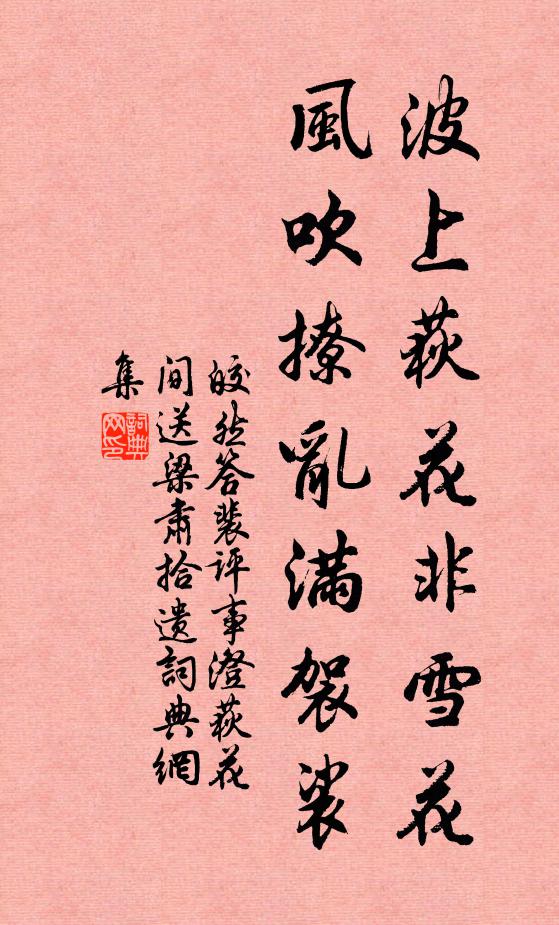 波上荻花非雪花
風吹撩亂滿袈裟
皎然答裴评事澄荻花
间送梁肃拾遗詞典網
集
詞典
网印